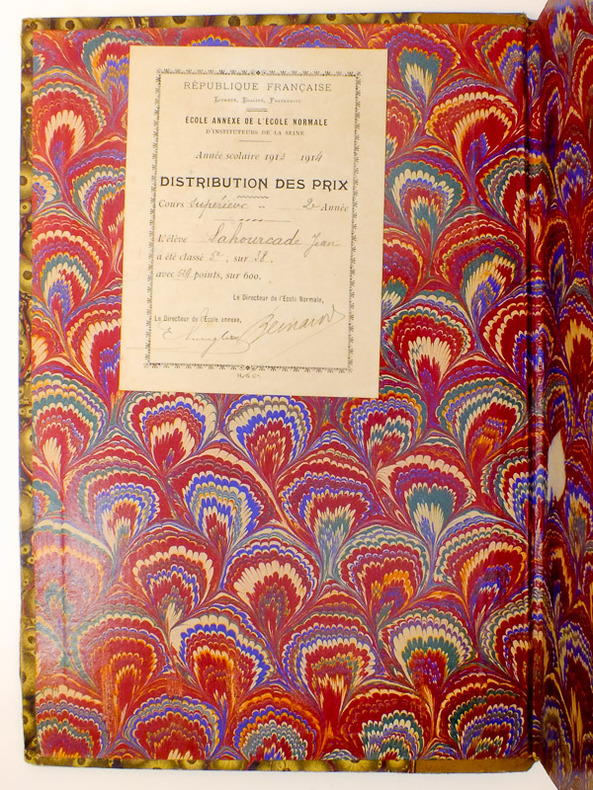 RÉPUBLIQUE FRANÇAISE
Liberté, Égalité, Fraternité
ÉCOLE ANNEXE DE L'ÉCOLE NORMALE
D'INSTITUTEURS DE LA SEINE
Année scolaire 1913 1914
DISTRIBUTION DES PRIX
Cours Supérieur 2e Année
L'élève Lahourcade Jean
a été classé 5e, sur 38.
avec points, sur 600.
Le Directeur de l'École Normale,
Le Directeur de l'École annexe,
Bernard